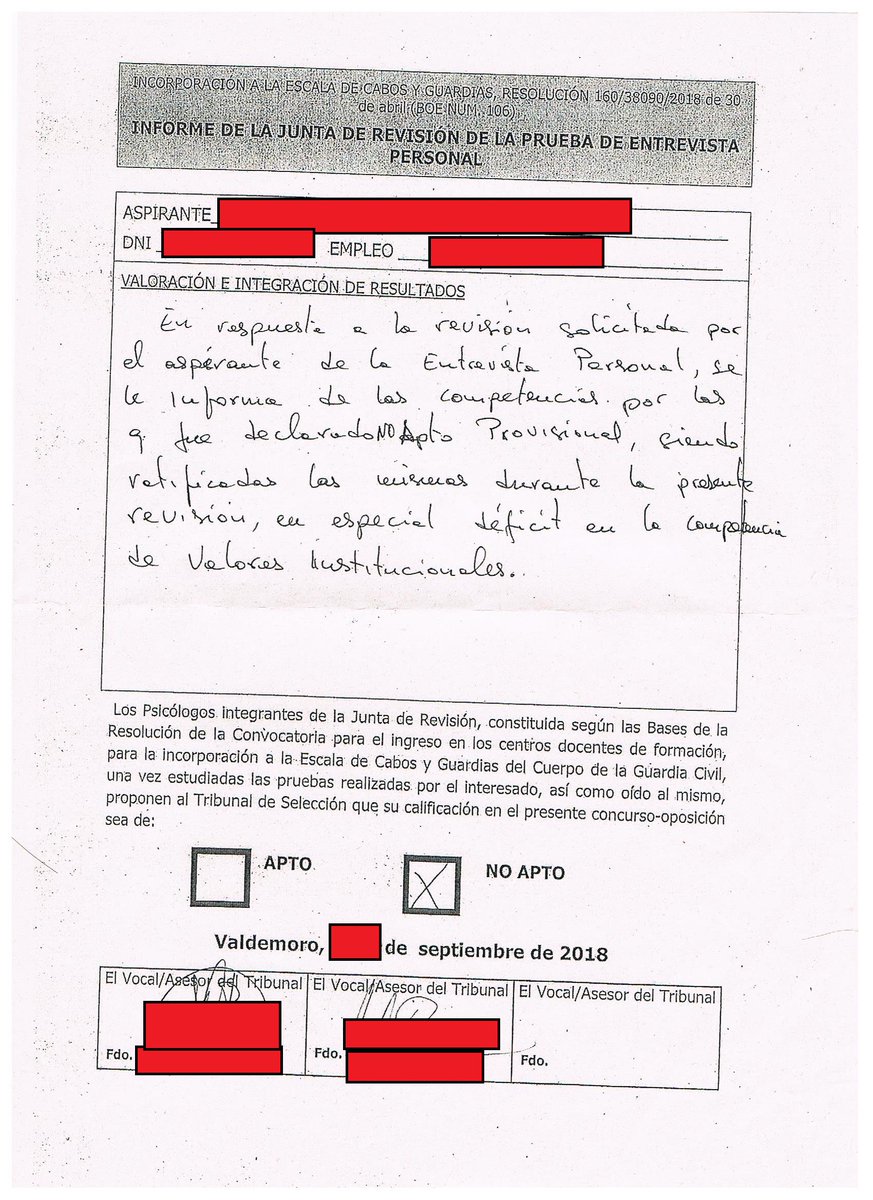 INCORPORACIÓN A LA ESCALA DE CABOS Y GUARDIAS, RESOLUCIÓN 160/38090/2018 de 30
de abril (BOE NÚM. 106)
INFORME DE LA JUNTA DE REVISIÓN DE LA PRUEBA DE ENTREVISTA
PERSONAL
ASPIRANTE
DNI EMPLEO
VALORACIÓN E INTEGRACIÓN DE RESULTADOS
En respuesta a la revisión solicitada por
el aspirante de la Entrevista Personal, se
le informa de las competencias por las
q fue declarado NO Apto Provisional, siendo
ratificadas las mismas durante la presente
revisión, en especial déficit en la competencia
de Valores Institucionales.
Los Psicólogos integrantes de la Junta de Revisión, constituida según las Bases de la
Resolución de la Convocatoria para el ingreso en los centros docentes de formación,
para la incorporación a la Escala de Cabos y Guardias del Cuerpo de la Guardia Civil,
una vez estudiadas las pruebas realizadas por el interesado, así como oído al mismo,
proponen al Tribunal de Selección que su calificación en el presente concurso-oposición
sea de:
APTO X NO APTO
Valdemoro, de septiembre de 2018
El Vocal/Asesor del Tribunal El Vocal/Asesor del Tribunal El Vocal/Asesor del Tribunal
Fdo. Fdo. Fdo.